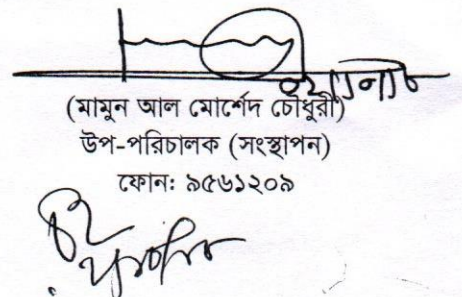 (মামুন আল মোর্শেদ চৌধুরী)
উপ-পরিচালক (সংস্থাপন)
ফোনঃ ৯৫৬১২০৯